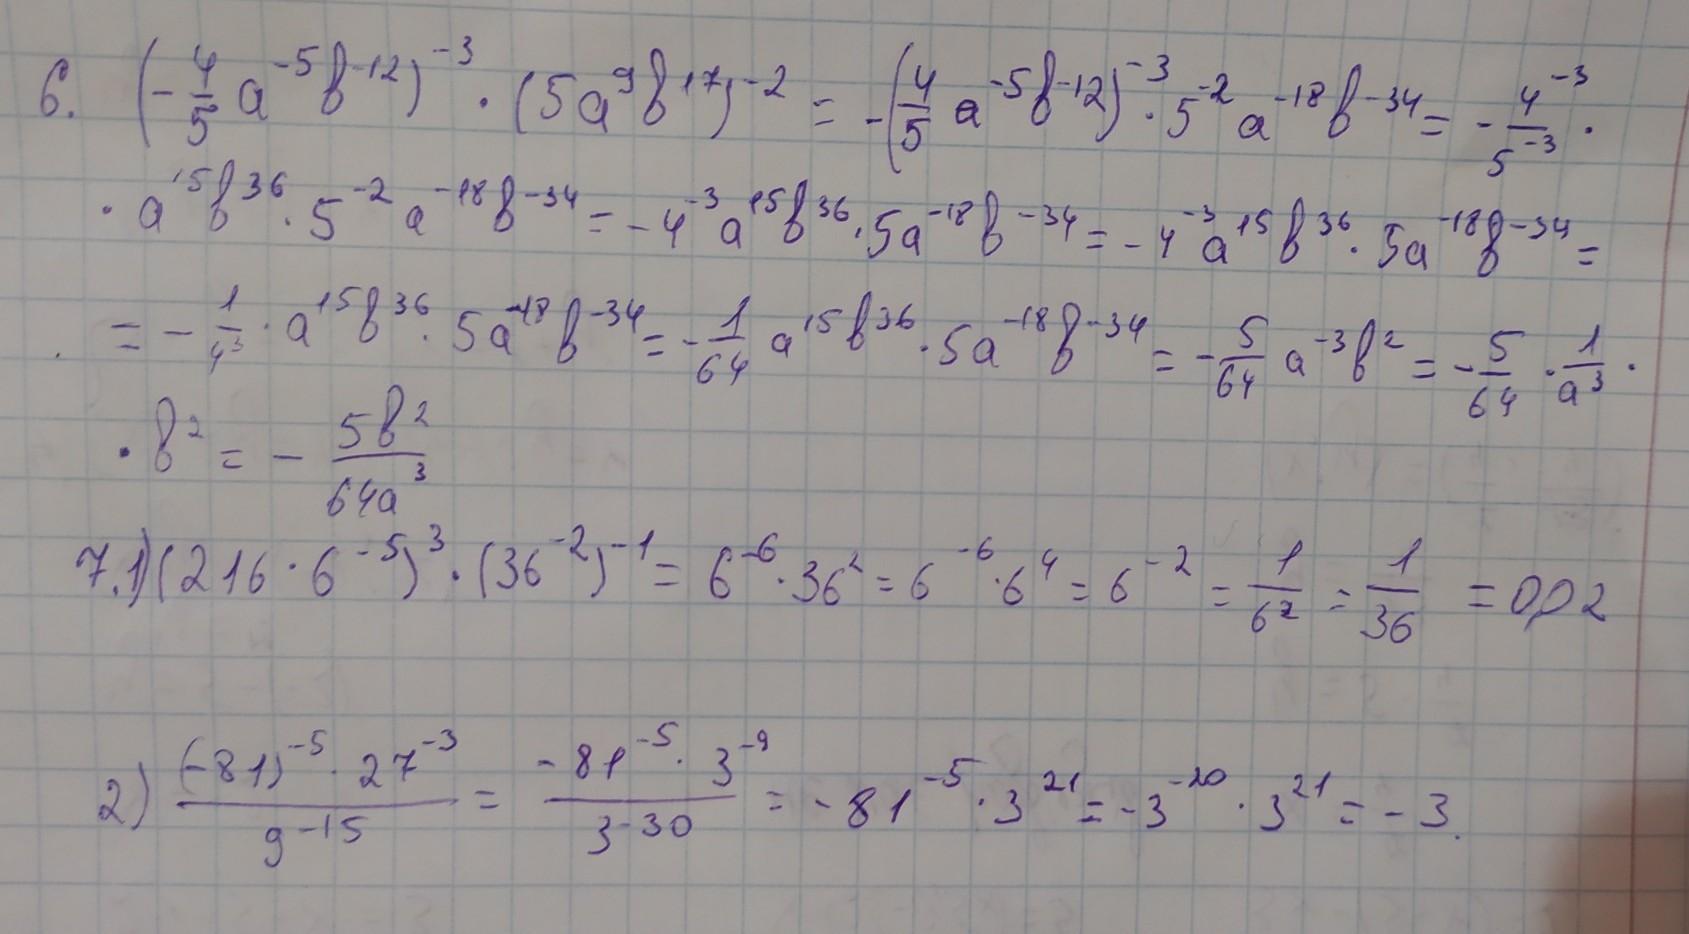 6. (-4/5 a^-5 b^-12)^-3 · (5a^9 b^17)^-2 = -(4/5 a^-5 b^-12)^-3 · 5^-2 a^-18 b^-34 = - 4^-3/5^-3 ·
· a^15 b^36 · 5^-2 a^-18 b^-34 = - 4^-3 a^15 b^36 · 5a^-18 b^-34 = - 4^-3 a^15 b^36 · 5a^-18 b^-34 =
= - 1/4^3 · a^15 b^36 · 5a^-18 b^-34 = - 1/64 a^15 b^36 · 5a^-18 b^-34 = - 5/64 a^-3 b^2 = - 5/64 · 1/a^3 ·
· b^2 = - 5b^2/64a^3
7.1) (216 · 6^-5)^3 · (36^-2)^-1 = 6^-6 · 36^2 = 6^-6 · 6^4 = 6^-2 = 1/6^2 = 1/36 = 0,02
2) (-81)^-5 · 27^-3 / 9^-15 = -81^-5 · 3^-9 / 3^-30 = - 81^-5 · 3^21 = -3^-20 · 3^21 = - 3.